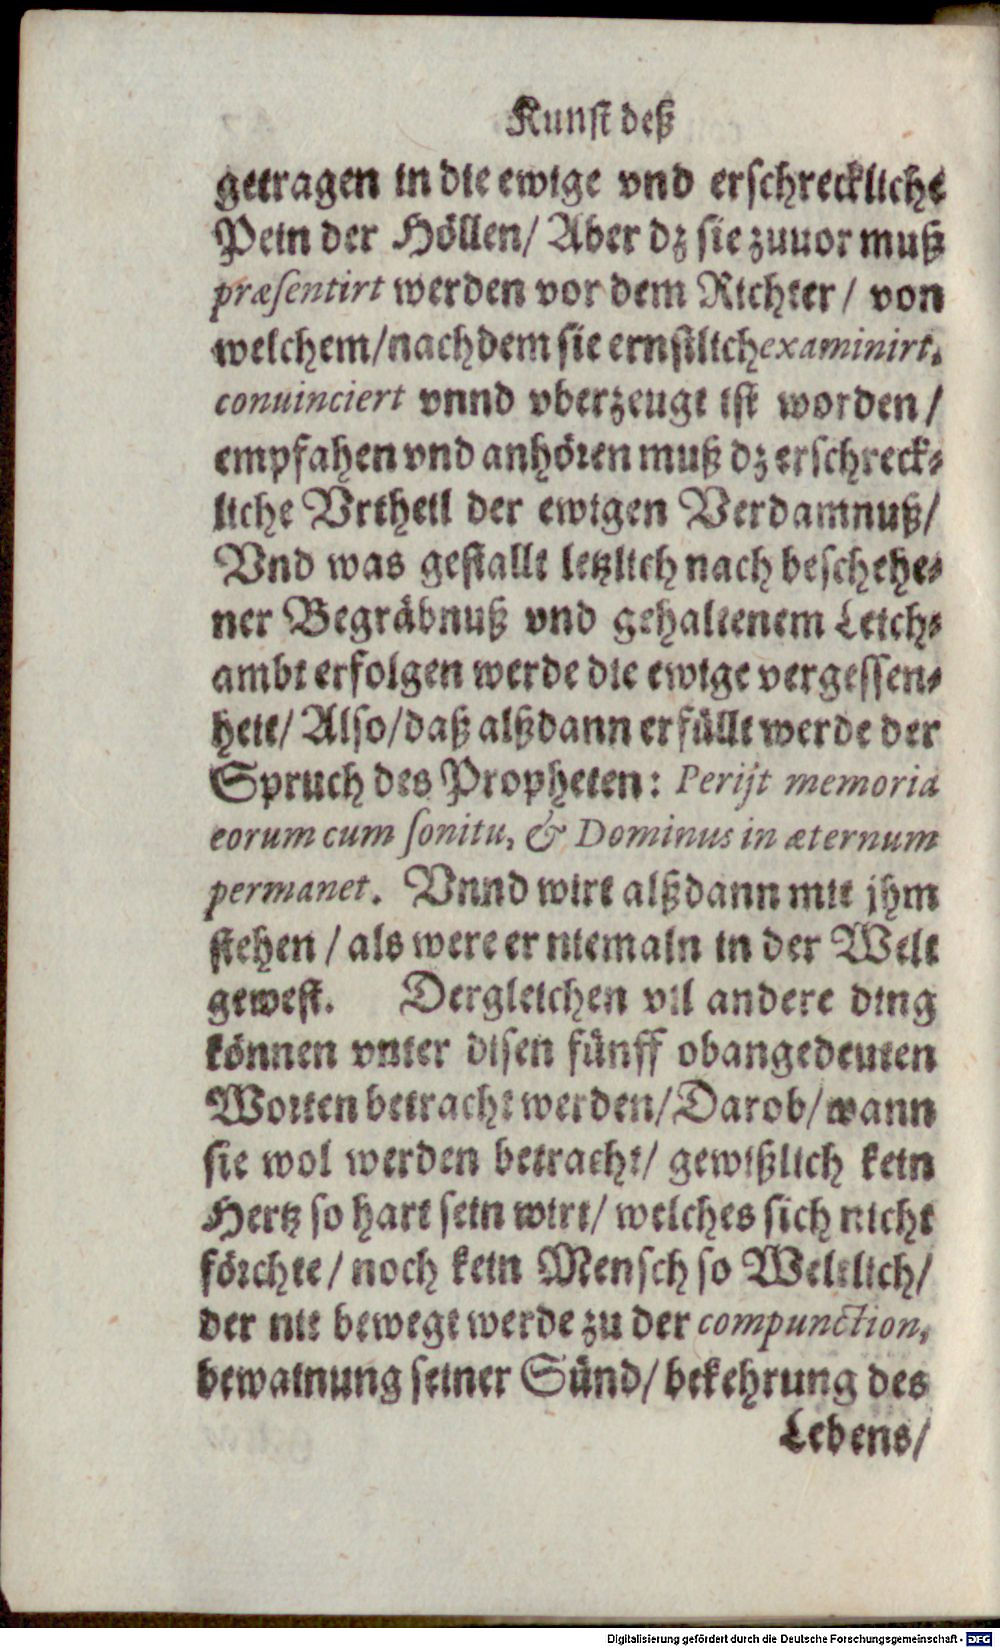 Kunst deß
getragen in die ewige vnd erschreckliche
Pein der Höllen/ Aber dz sie zuuor muß
præsentirt werden vor dem Richter / von
welchem/nachdem sie ernstlich examinirt,
conuinciert vnnd vberzeugt ist worden /
empfahen vnd anhören muß dz erschreck-
liche Vrtheil der ewigen Verdamnuß/
Vnd was gestallt letzlich nach beschehe-
ner Begräbnuß vnd gehaltenem Leich-
ambt erfolgen werde die ewige vergessen-
heit/ Also/daß alßdann erfüllt werde der
Spruch des Propheten: Perijt memoria
eorum cum sonitu, & Dominus in æternum
permanet. Vnnd wirt alßdann mit jhm
stehen / als were er niemaln in der Welt
gewest. Dergleichen vil andere ding
können vnter disen fünff obangedeuten
Worten betracht werden/Darob/wann
sie wol werden betracht/ gewißlich kein
Hertz so hart sein wirt/ welches sich nicht
förchte / noch kein Mensch so Weltlich/
der nit bewegt werde zu der compunction,
bewainung seiner Sünd/ bekehrung des
Lebens/
Digitalisierung gefördert durch die Deutsche Forschungsgemeinschaft - DFG